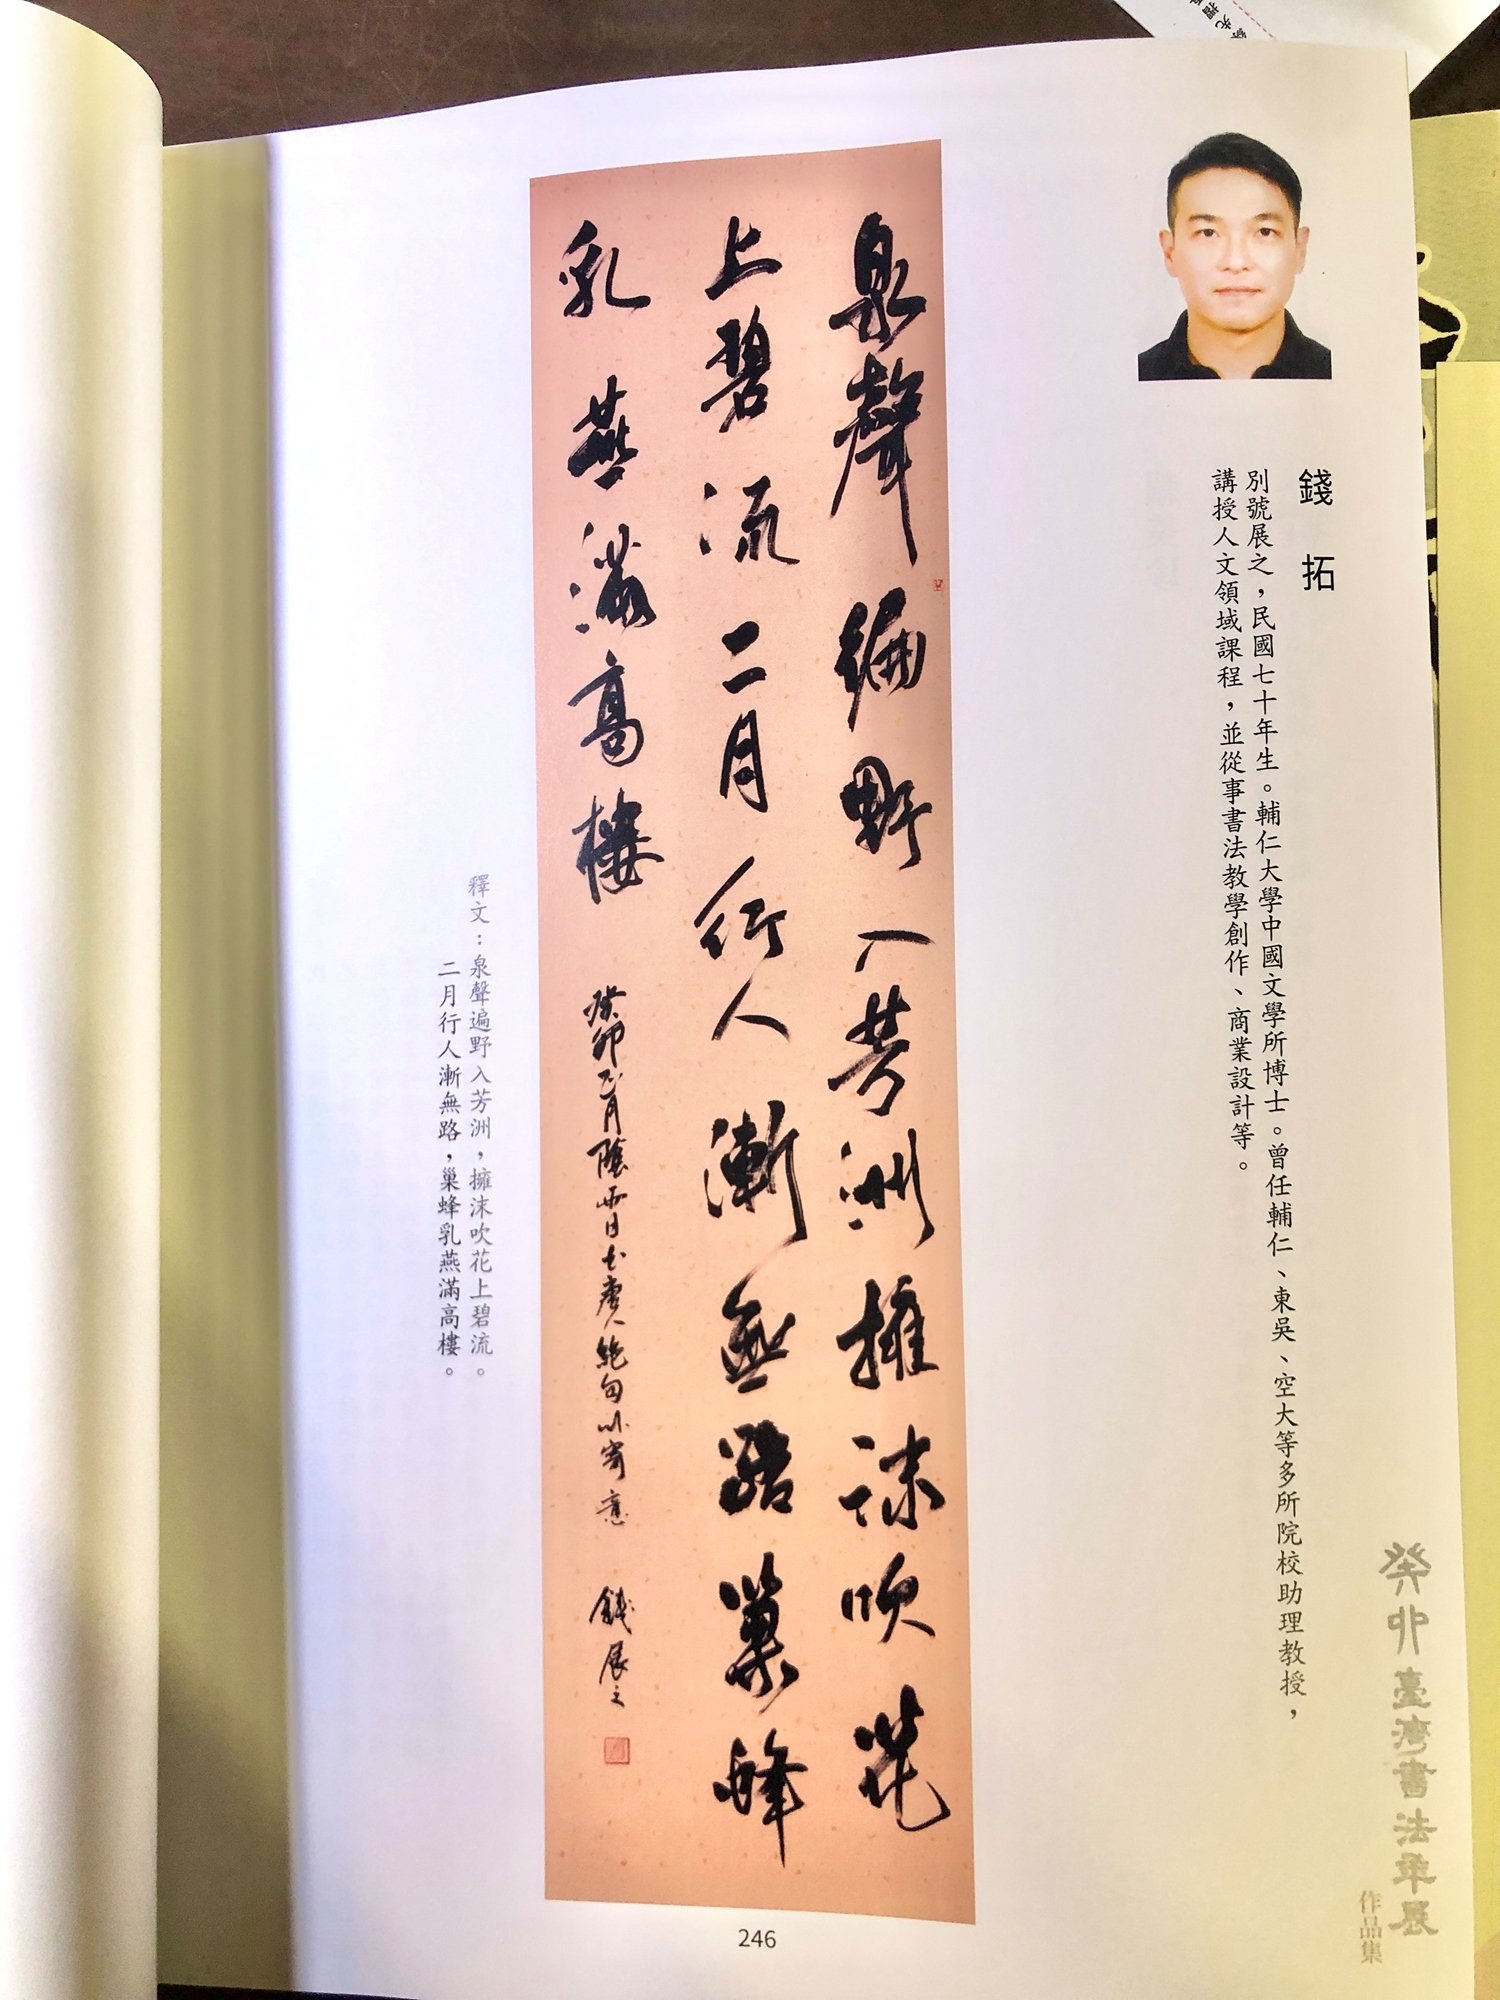 錢拓
別號展之，民國七十年生。輔仁大學中國文學所博士。曾任輔仁、東吳、空大等多所院校助理教授，
講授人文領域課程，並從事書法教學創作、商業設計等。
泉聲遍野入芳洲擁沫吹花
上碧流二月行人漸無路巢蜂
乳燕滿高樓
癸卯正月陰雨日書唐人絕句以寄意 錢展之
釋文：泉聲遍野入芳洲，擁沫吹花上碧流。
二月行人漸無路，巢蜂乳燕滿高樓。
癸卯臺灣書法年展
作品集
246